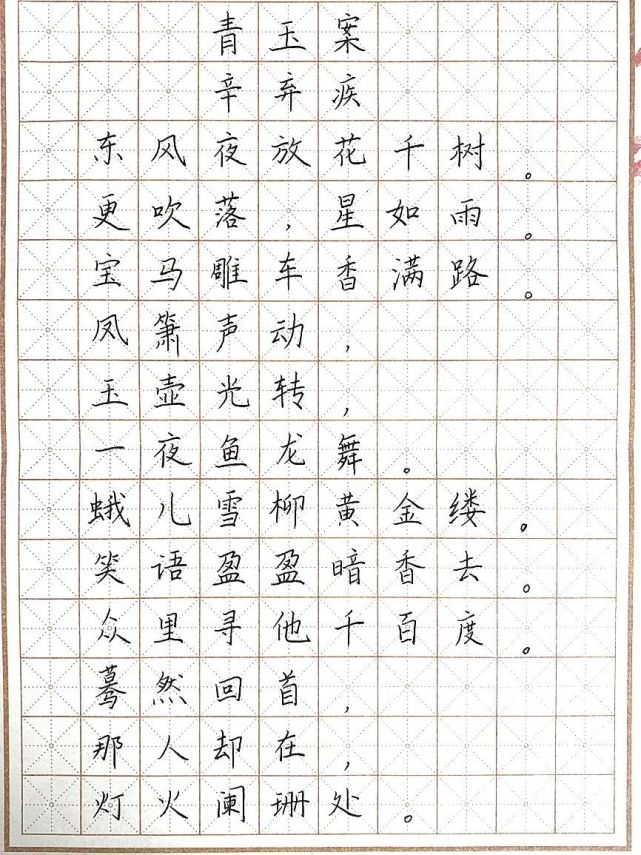 青玉案
辛弃疾
东风夜放花千树。
更吹落,星如雨。
宝马雕车香满路。
凤箫声动,
玉壶光转,
一夜鱼龙舞。
蛾儿雪柳黄金缕。
笑语盈盈暗香去。
众里寻他千百度。
蓦然回首,
那人却在,
灯火阑珊处。